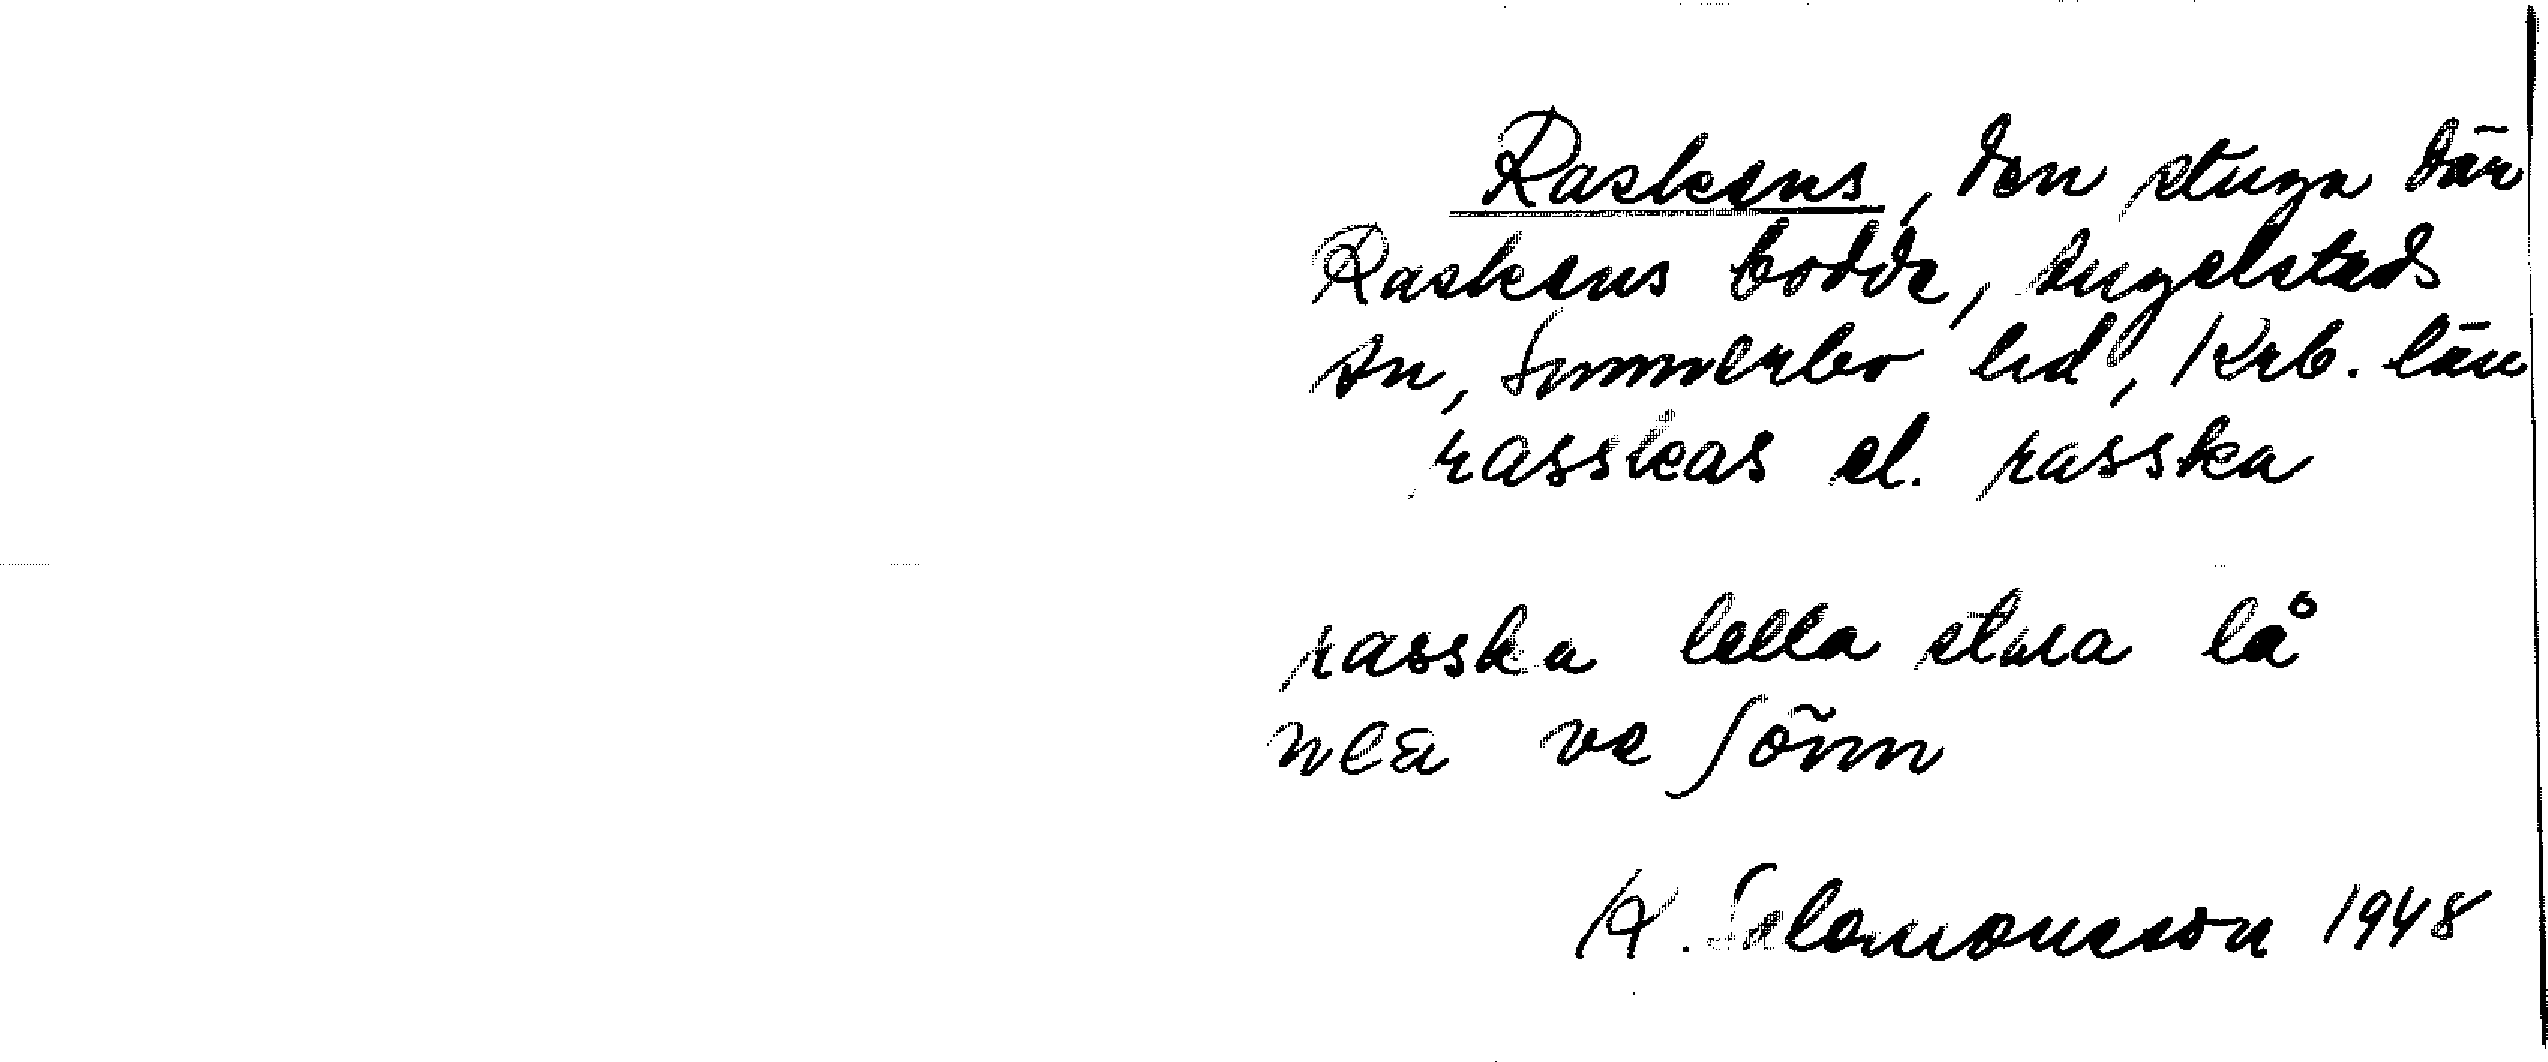 Raskens, den stuga där
Raskens bodde, Ingelstads
sn, Simmerbo hd, Krb. län
rasskas el. rasska
rasska lella stua lå
nea ve ſönn
K. Salomonsson 1948